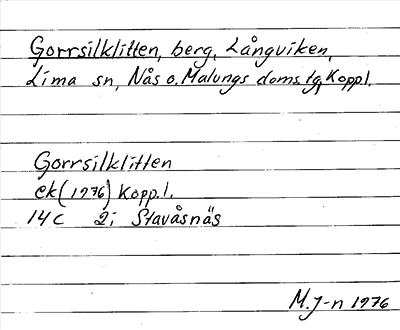 Gorrsilklitten, berg, Långviken,
Lima sn, Nås o. Malungs doms. tg, Kopp.l.
Gorrsilklitten
ek (1976) Kopp.l.
14 C 2i Stavåsnäs
M. J-n 1976